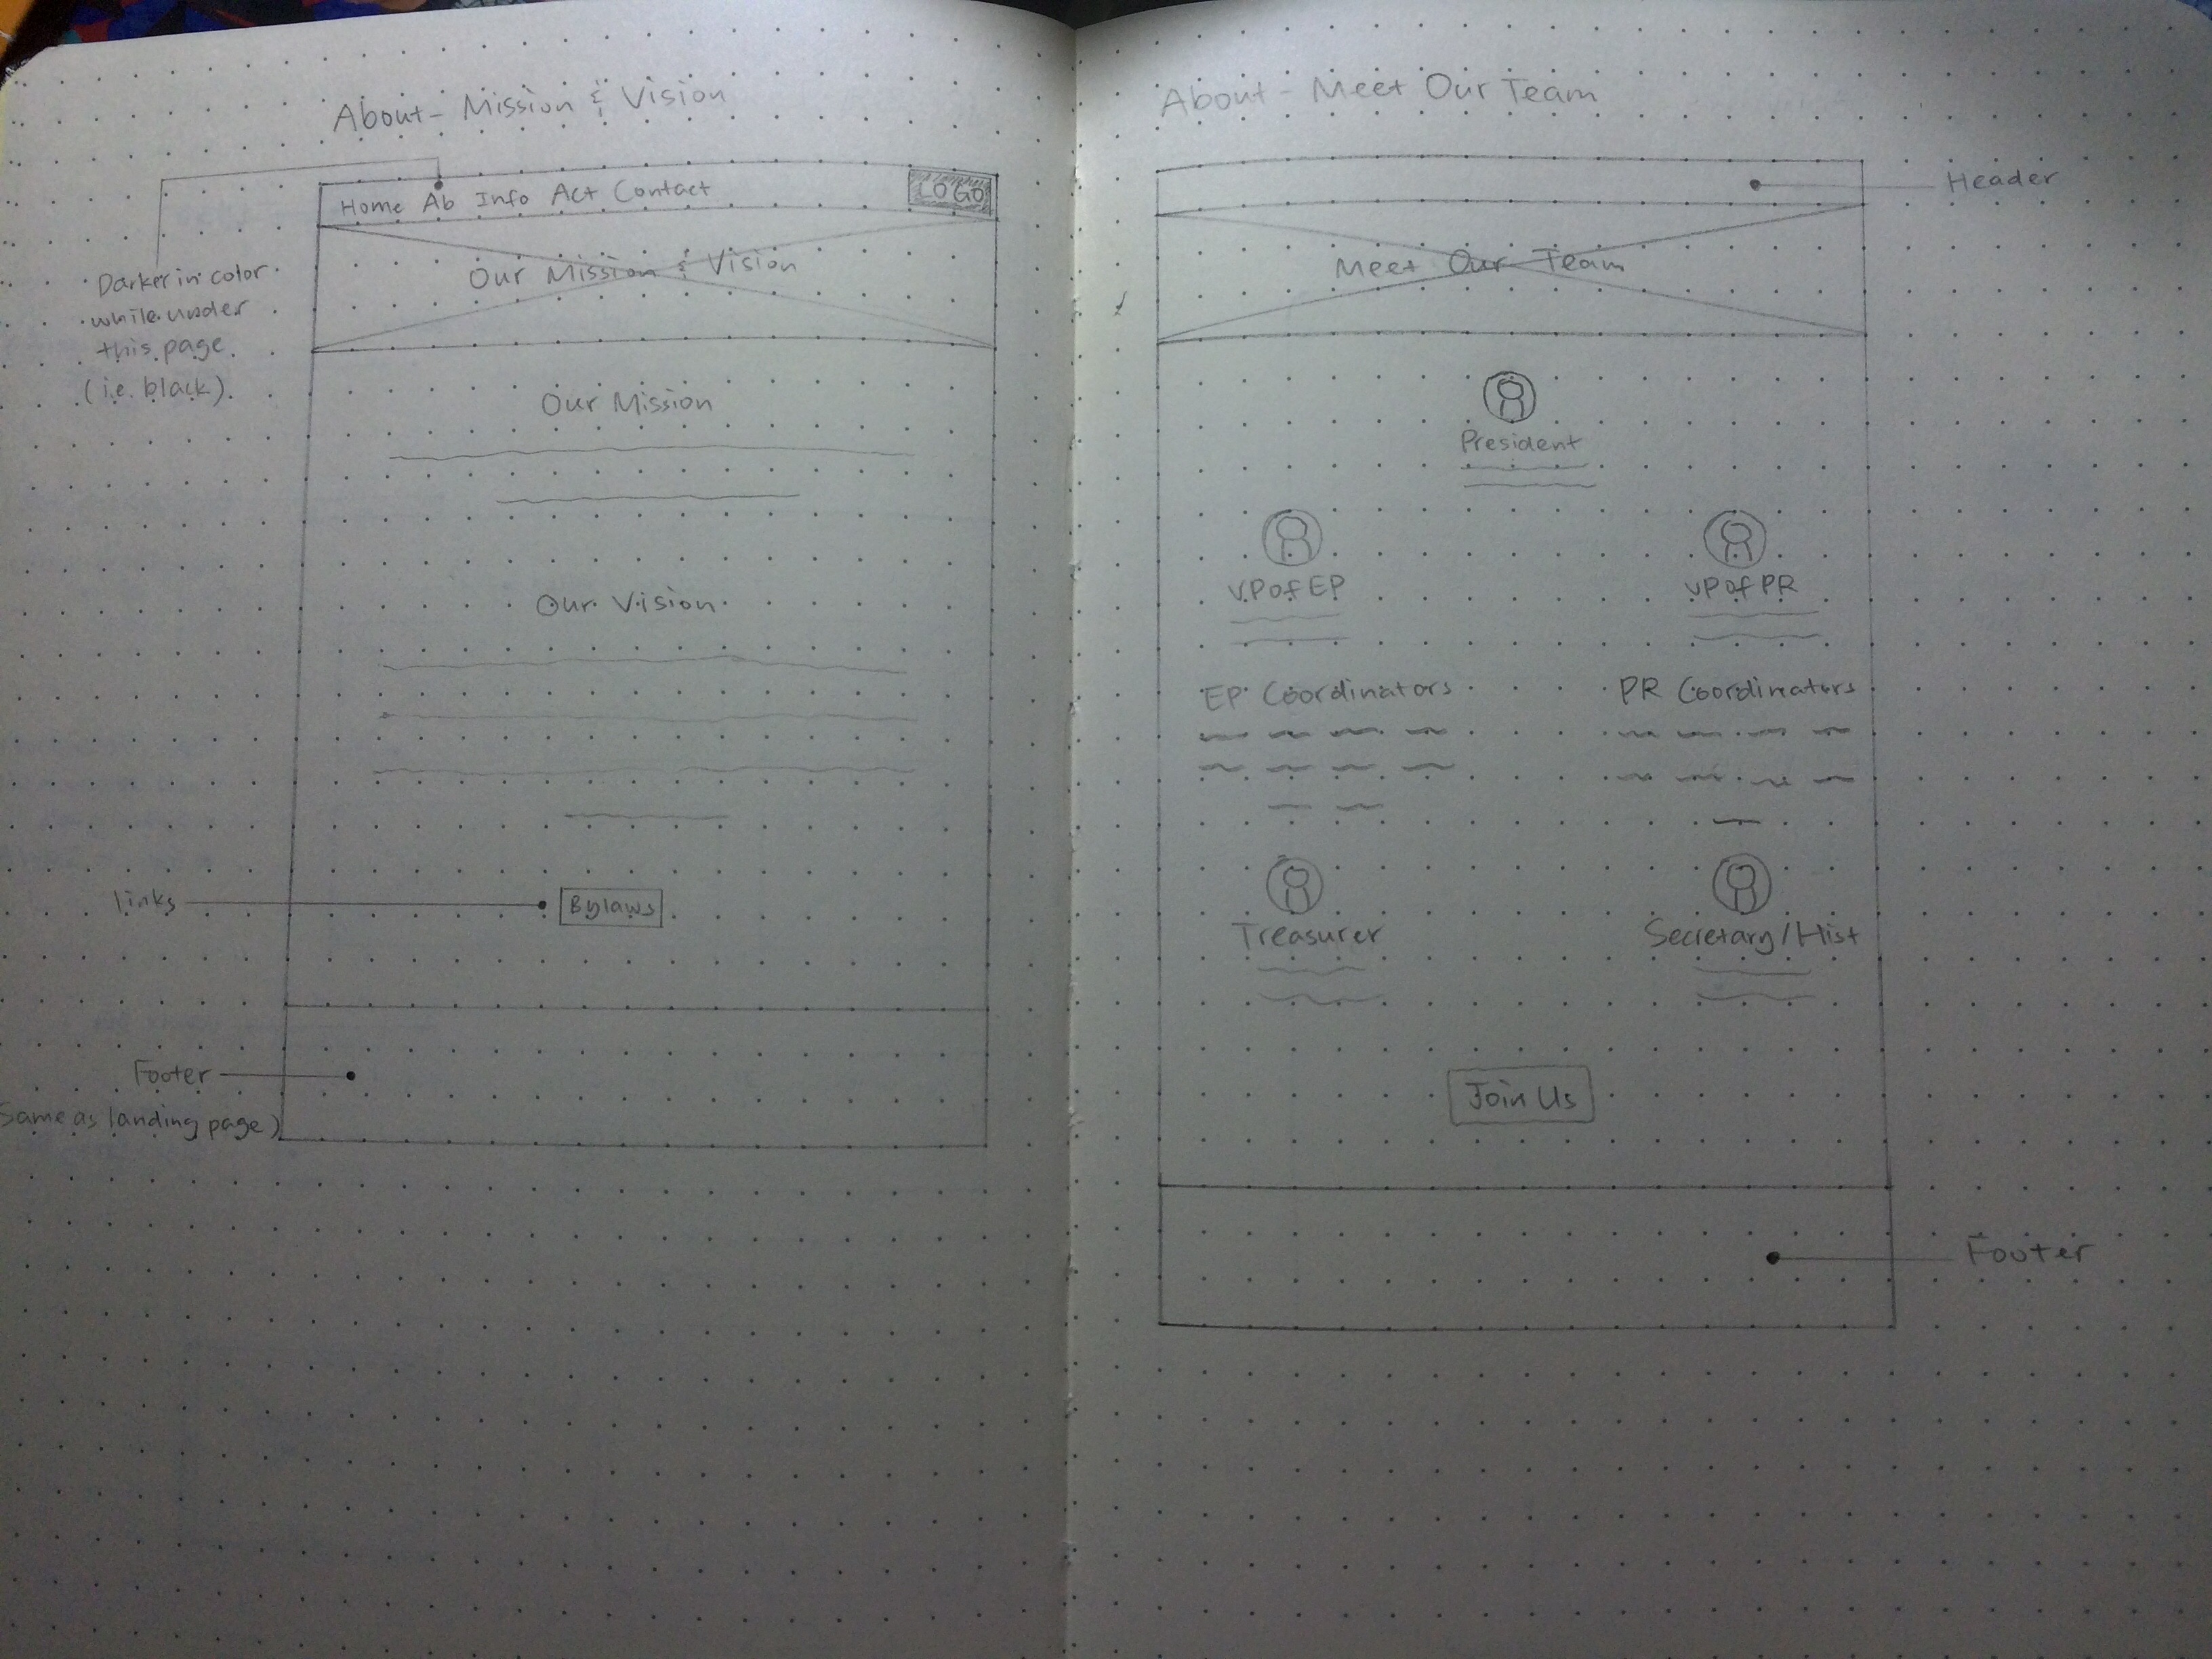 About - Mission & Vision
Home Ab Info Act Contact
LOGO
Darker in color
while under
this page
(i.e. black)
Our Mission & Vision
Our Mission
Our Vision
links
Bylaws
Footer
Same as landing page)
About - Meet Our Team
Header
Meet Our Team
President
VP of EP
VP of PR
EP Coordinators
PR Coordinators
Treasurer
Secretary/Hist
Join Us
Footer